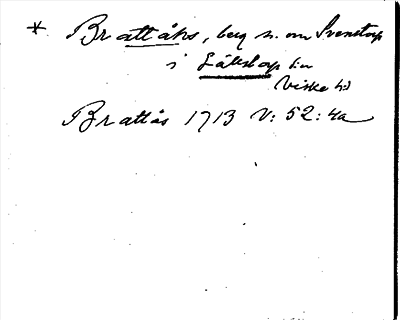 * Brattåhs, berg n. om Svenstorp
i Låkstorp s:n
Viske hd
Brattås 1713 V: 52: 4a